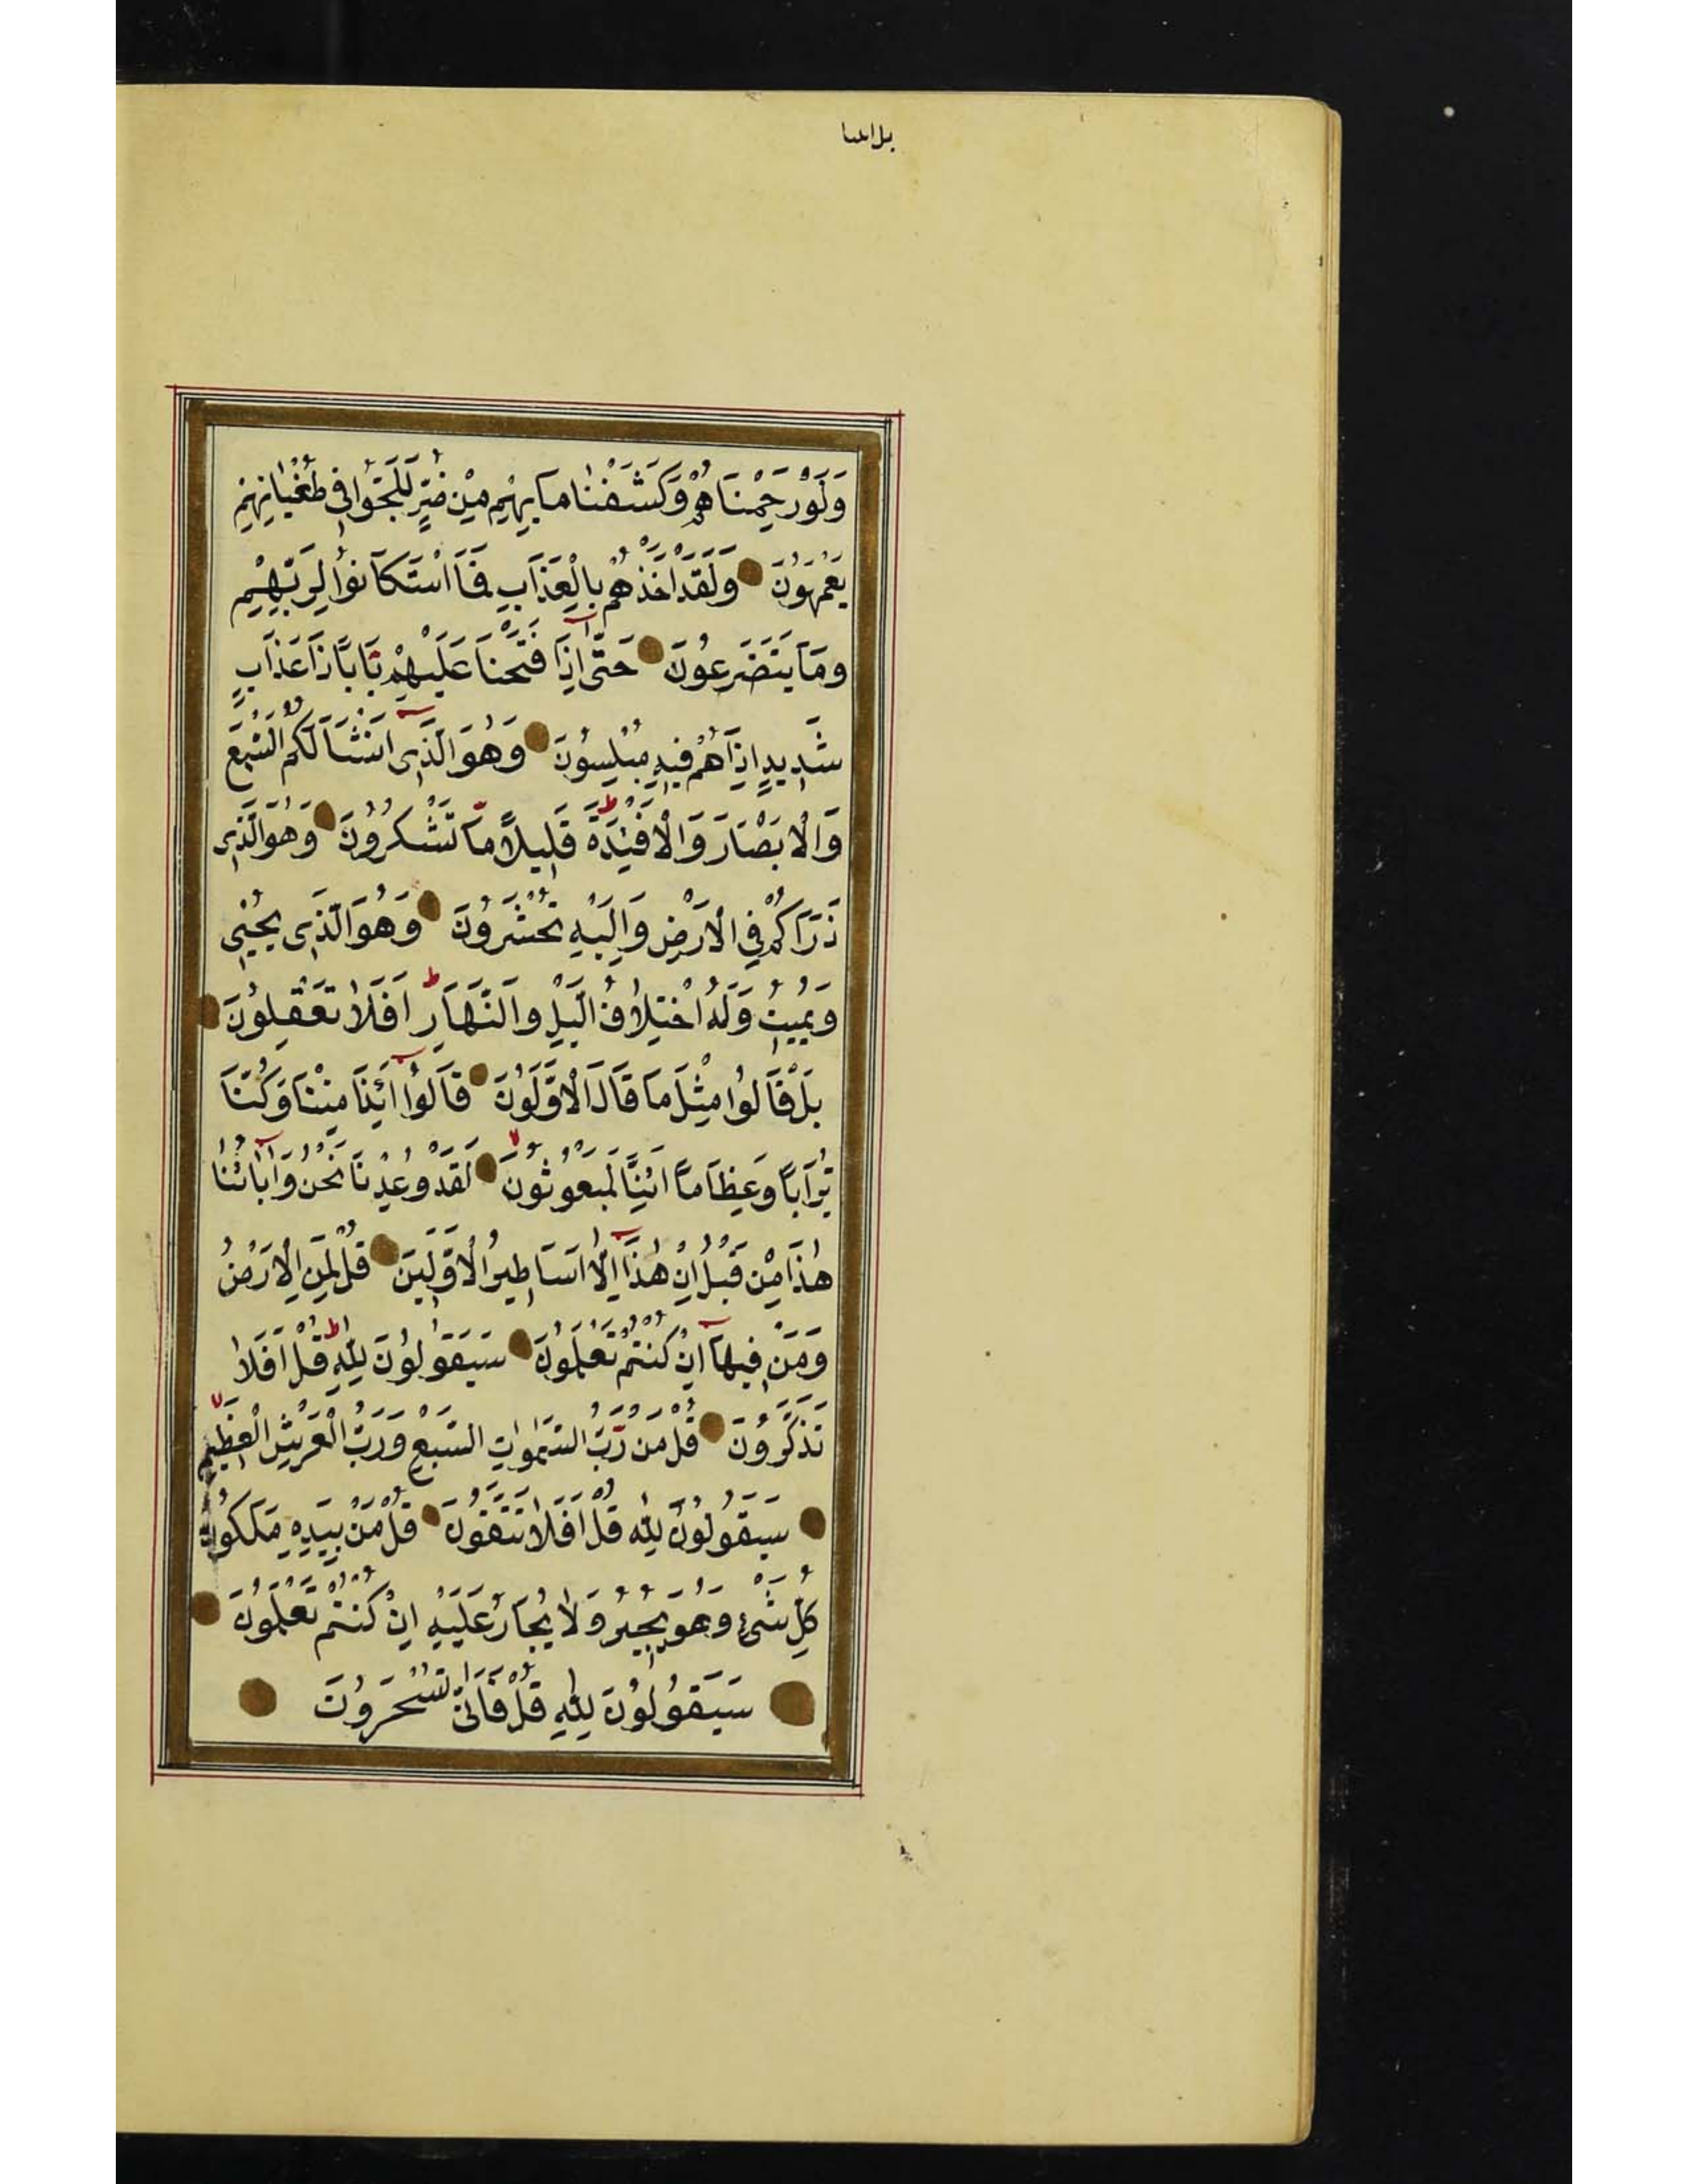 بل اتينا
وَلَوْ رَحِمْنَاهُمْ وَكَشَفْنَا مَا بِهِمْ مِنْ ضُرٍّ لَلَجُّوا فِي طُغْيَانِهِمْ
يَعْمَهُونَ وَلَقَدْ اَخَذْهُمْ بِالْعَذَابِ فَمَا اسْتَكَانُوا لِرَبِّهِمْ
وَمَا يَتَضَرَّعُونَ حَتّٰى اِذَا فَتَحْنَا عَلَيْهِمْ بَابًا ذَا عَذَابٍ
شَدِيدٍ اِذَا هُمْ فِيهِ مُبْلِسُونَ وَهُوَ الَّذِى اَنْشَاَ لَكُمُ السَّمْعَ
وَالْاَبْصَارَ وَالْاَفْئِدَةَ ط قَلِيلاً مَّا تَشْكُرُونَ وَهُوَ الَّذِى
ذَرَاَكُمْ فِي الْاَرْضِ وَاِلَيْهِ تُحْشَرُونَ وَهُوَ الَّذِى يُحْيِى
وَيُمِيتُ وَلَهُ اخْتِلَافُ الَّيْلِ وَالنَّهَارِ ط اَفَلَا تَعْقِلُونَ
بَلْ قَالُوا مِثْلَ مَا قَالَ الْاَوَّلُونَ قَالُوا اَئِذَا مِتْنَا وَكُنَّا
تُرَابًا وَعِظَامًا اَئِنَّا لَمَبْعُوثُونَ لا لَقَدْ وُعِدْنَا نَحْنُ وَآبَائُنَا
هٰذَا مِنْ قَبْلُ اِنْ هٰذَا اِلَّا اَسَاطِيرُ الْاَوَّلِينَ قُلْ لِمَنِ الْاَرْضُ
وَمَنْ فِيهَا اِنْ كُنْتُمْ تَعْلَمُونَ سَيَقُولُونَ لِلّٰهِ ط قُلْ اَفَلَا
تَذَكَّرُونَ قُلْ مَنْ رَّبُّ السَّمٰوَاتِ السَّبْعِ وَرَبُّ الْعَرْشِ الْعَظِيمِ لا
سَيَقُولُونَ لِلّٰهِ قُلْ اَفَلَا تَتَّقُونَ قُلْ مَنْ بِيَدِهِ مَلَكُوتُ
كُلِّ شَىْءٍ وَهُوَ يُجِيرُ وَلَا يُجَارُ عَلَيْهِ اِنْ كُنْتُمْ تَعْلَمُونَ
سَيَقُولُونَ لِلّٰهِ قُلْ فَاَنّٰى تُسْحَرُونَ